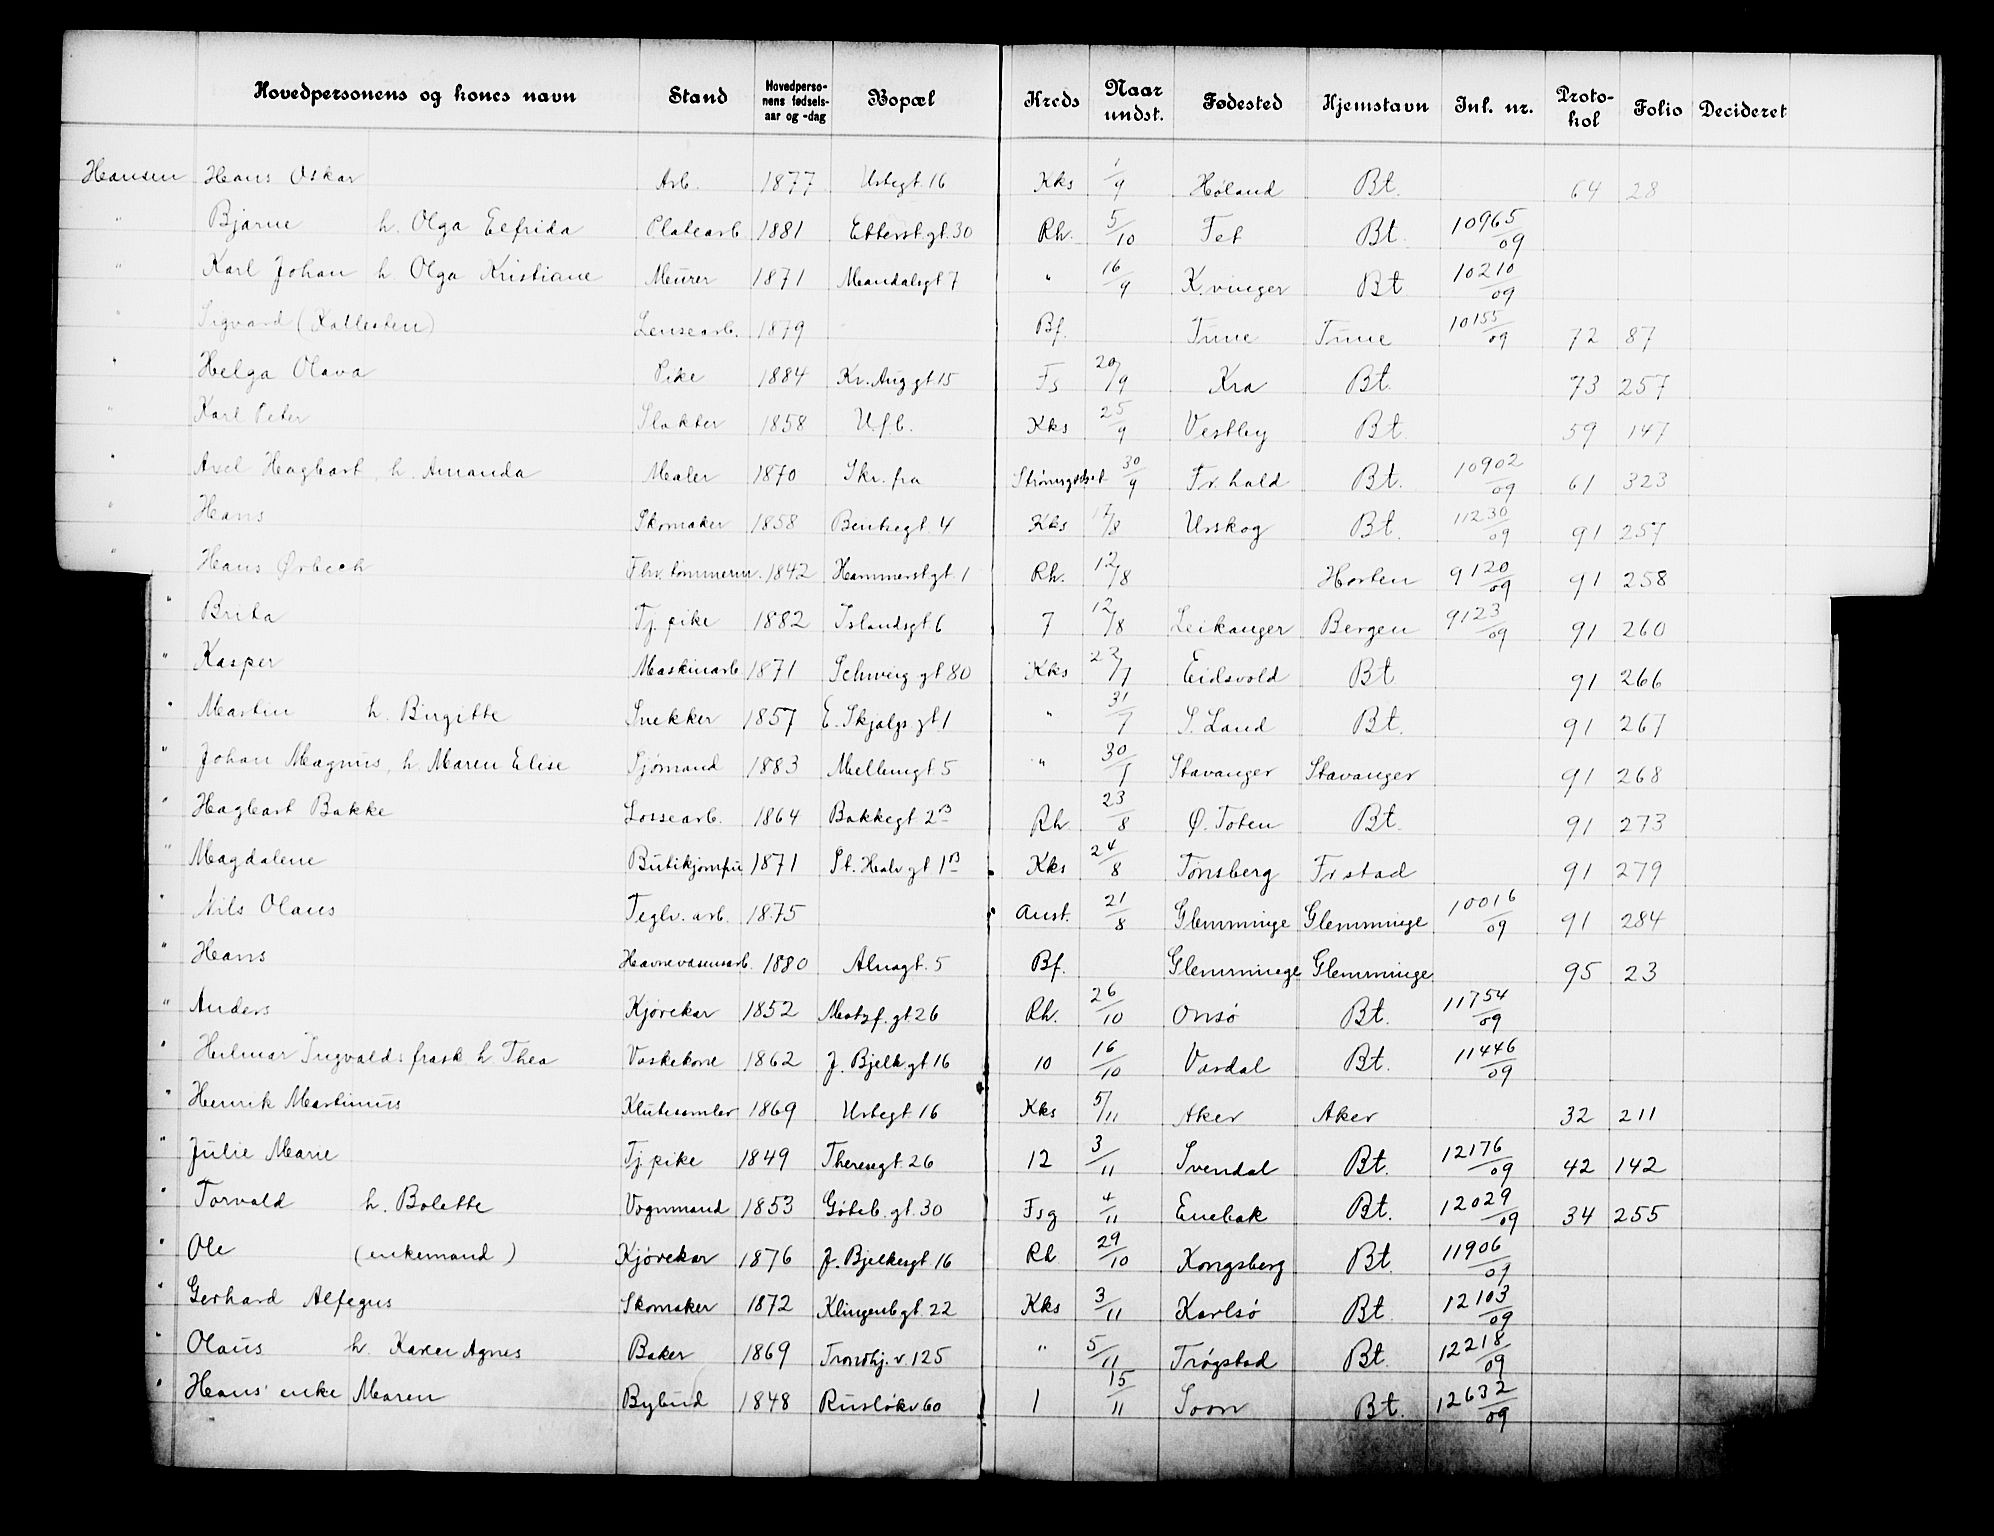 Hovedpersonens og kones navn Stand Hovedperso-nens fødsels-aar og -dag Bopæl Kreds Naar undst. Fødested Hjemstavn Inl. nr. Proto-kol Folio Decideret
Hansen Hans Oskar Arb. 1877 Urtegt. 16 Kks 1/9 Høland Bt. 64 28
" Bjarne h. Olga Elfrida Platearb. 1881 Etterst.gt. 30 Rh. 5/10 Fet Bt. 10965/09
" Karl Johan h. Olga Kristiane Murer 1871 Mandalsgt 7 " 16/9 K.vinger Bt 10210/09
" Sigvard (Kallesten) Lensearb. 1879 Bf. Tune Tune 10155/09 72 87
" Helga Olava Pike 1884 Kr. Aug gt 15 Fs 20/9 Kra Bt. 73 257
" Karl Peter Slakter 1858 U.f.b. Kks 25/9 Vestby Bt. 59 147
" Axel Hagbart, h. Amanda Maler 1870 Skr. fra Strømsgodset 30/9 Fr.hald Bt. 10902/09 61 323
" Hans Skomaker 1858 Bentsegt. 4 Kks 12/8 Urskog Bt. 11230/09 91 257
" Hans Ørbech Fhv. tømmerm. 1842 Hammerst.gt. 1 Rh. 12/8 Horten 9120/09 91 258
" Brita Tj. pike 1882 Islandsgt 6 7 12/8 Leikanger Bergen 9123/09 91 260
" Kasper Maskinarb 1871 Schweig gt 80 Kks 22/7 Eidsvold Bt 91 266
" Martin h. Birgitte Snekker 1857 E. Skjalgs gt 1 " 31/7 S. Land Bt. 91 267
" Johan Magnus, h. Maren Elise Sjømand 1883 Mellemgt 5 " 30/1 Stavanger Stavanger 91 268
" Hagbart Bakke Lossearb. 1864 Bakkegt 2B Rh 23/8 Ø. Toten Bt. 91 273
" Magdalene Butikjomfru 1871 St. Halv gt 1B Kks 24/8 Tønsberg Frstad 91 279
" Nils Olaus Teglv. arb. 1875 Aust. 21/8 Glemminge Glemminge 10016/09 91 284
" Hans Havnevæsensarb. 1880 Alnagt. 5 Bf. Glemminge Glemminge 95 23
" Anders Kjørekar 1852 Motzf. gt 26 Rh. 26/10 Onsø Bt. 11754/09
" Hilmar Ingvalds frask. h. Thea Vaskekone 1862 J. Bjelk.gt 16 10 16/10 Vardal Bt. 11446/09
" Henrik Martinus Klutesamler 1869 Urtegt 16 Kks 5/11 Aker Aker 32 211
" Julie Marie Tj. pike 1849 Theresgt. 26 12 3/11 Svendal Bt. 12176/09 42 142
" Torvald h. Bolette Vognmand 1853 Gøteb. gt. 30 Fsg 4/11 Enebak Bt. 12029/09 34 255
" Ole (enkemand) Kjørekar 1876 J. Bjelkesgt 16 Rh 29/10 Kongsberg Bt. 11906/09
" Gerhard Alfegus Skomaker 1872 Klingenb gt. 22 Kks 3/11 Karlsø Bt. 12103/09
" Olaus h. Karen Agnes Baker 1869 Trondhj. v. 125 " 5/11 Trøgstad Bt. 12218/09
" Hans' enke Maren Bybud 1848 Ruseløkv 60 1 15/11 Soon Bt. 12632/09